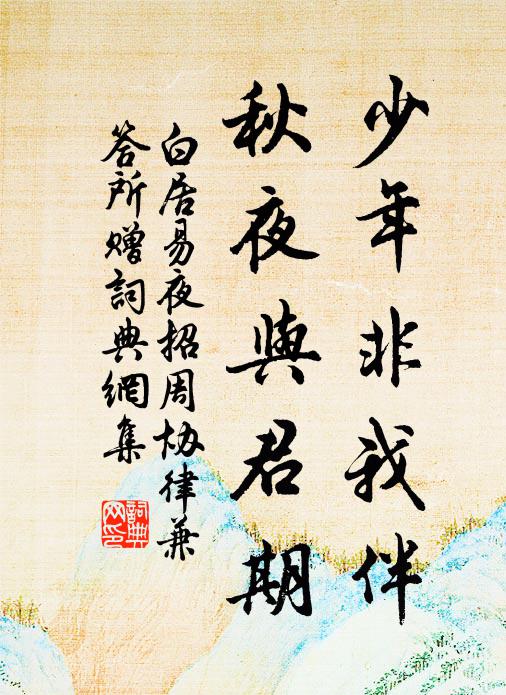 少年非我伴
秋夜與君期
白居易夜招周协律兼
答所赠詞典網集
詞典网印